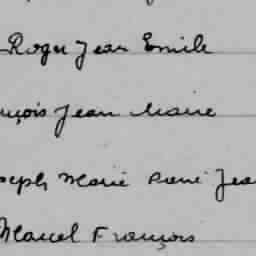 Roger Jean Emile
nçois Jean Marie
oseph Marie René Jea
Marcel François